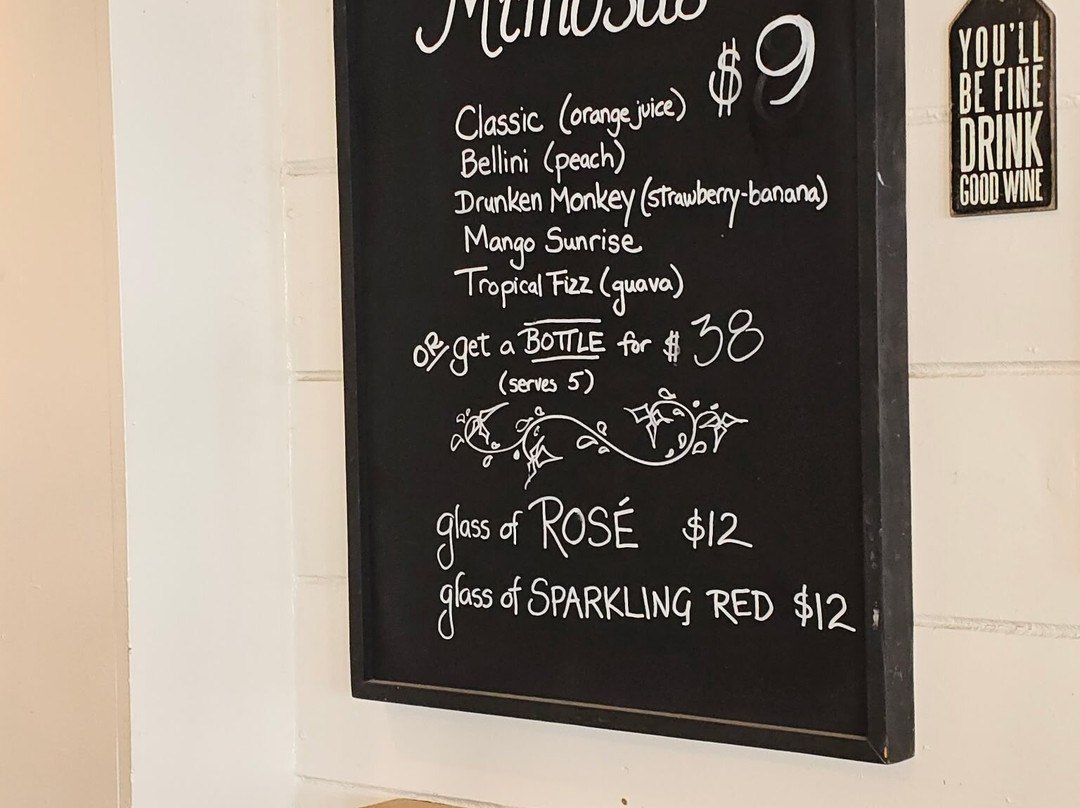 Mimosas
$9
Classic (orange juice)
Bellini (peach)
Drunken Monkey (strawberry-banana)
Mango Sunrise
Tropical Fizz (guava)
OR get a BOTTLE for $38
(serves 5)
glass of ROSÉ $12
glass of SPARKLING RED $12
YOU'LL
BE FINE
DRINK
GOOD WINE